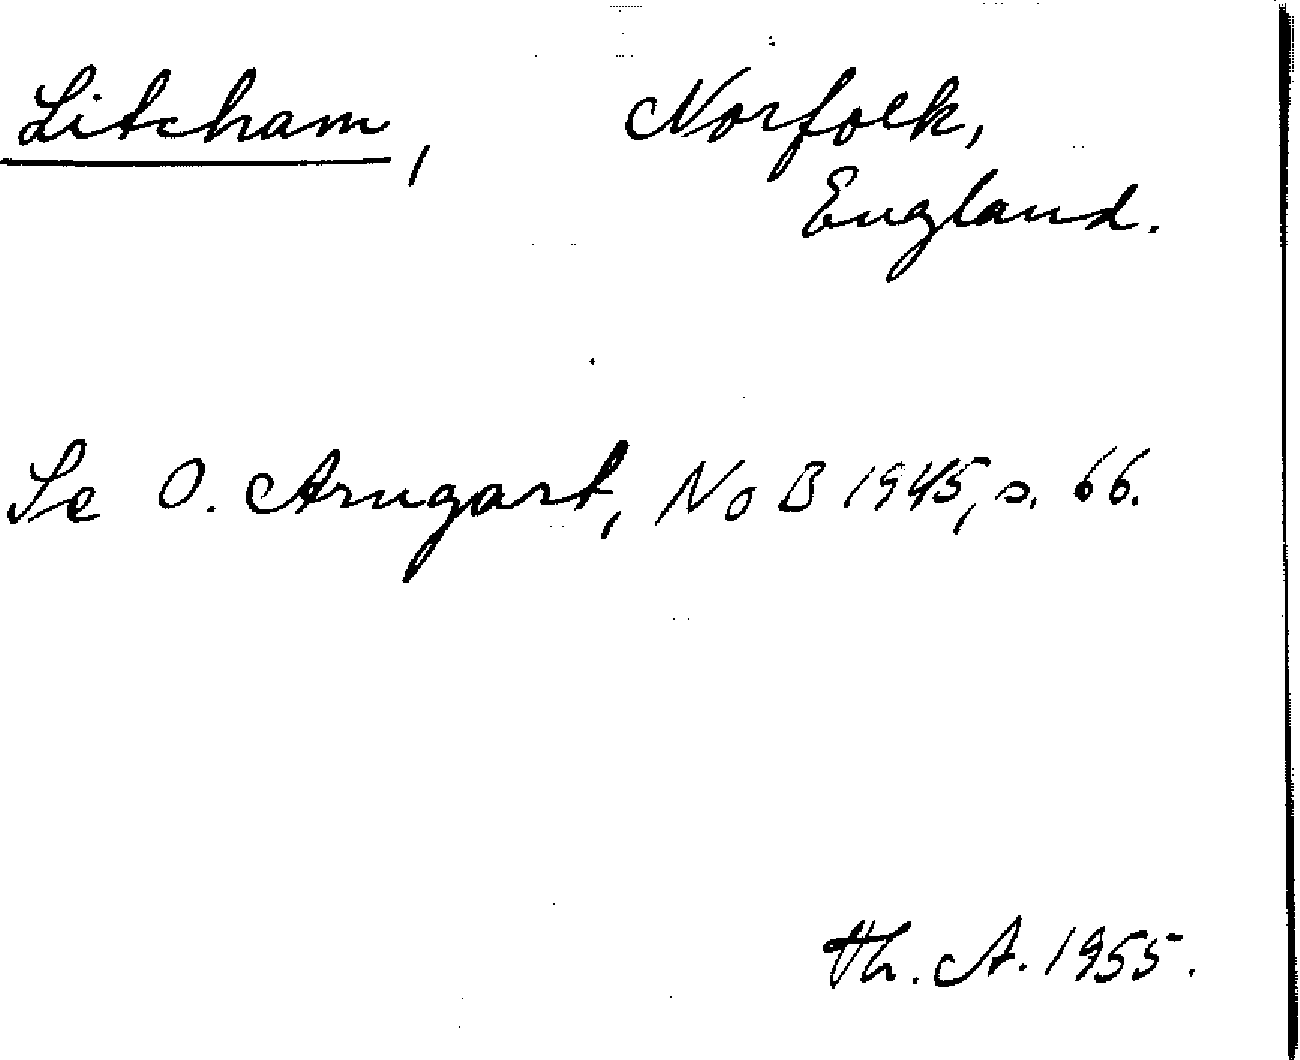 Litcham, Norfolk,
England.
Se O. Arngart, NoB 1945, s. 66.
Th. A. 1955.